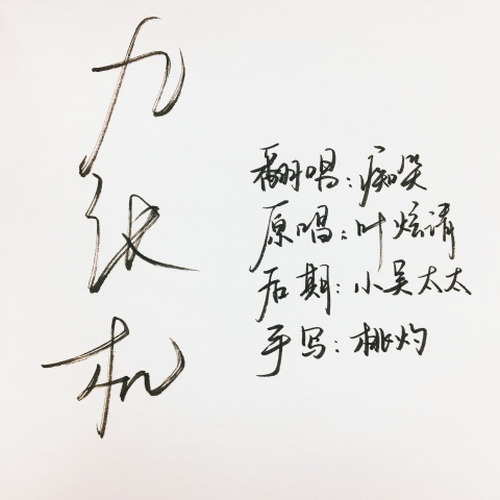 九张机
翻唱：痴
原唱：叶炫清
后期：小吴太太
手写：桃灼